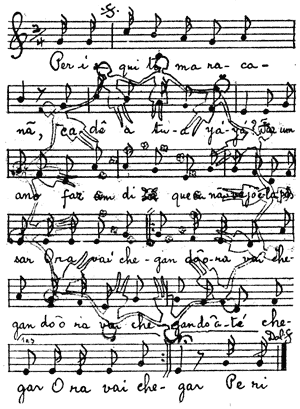 Per i qui to ma ra - ca -
nã, ca dê a tu - a yá - yá? Faz um
ano faz um di a que eu não
sar O ra vai che - gan dô o - ra vai che -
gan do ô ra vai che gan dô a - té che -
gar O ra vai che - gar Pe ri